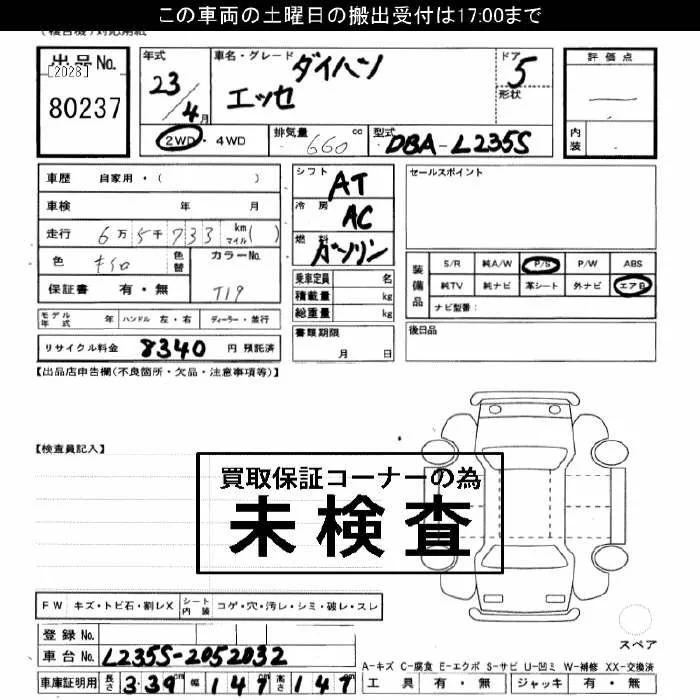 この車両の土曜日の搬出受付は17:00まで
出品No.
[2028]
80237
年式
23/4月
車名・グレード ダイハツ
エッセ
ドア 5
形状
評価点
内装
2WD・4WD
排気量 660 cc
型式 DBA-L235S
車歴 自家用・( )
車検 年 月
走行 6万5千733 km マイル( )
色 キイロ 色替 カラーNo.
T19
保証書 有・無
モデル年式 年 ハンドル 左・右 ディーラー・並行
リサイクル料金 8340 円 預託済
シフト AT
冷房 AC
燃料 ガソリン
乗車定員 名
積載量 kg
総重量 kg
書類期限
月 日
セールスポイント
装備品
S/R 純A/W P/S P/W ABS
純TV 純ナビ 革シート 外ナビ エアB
ナビ型番:
後日品
【出品店申告欄(不良箇所・欠品・注意事項等)】
【検査員記入】
買取保証コーナーの為
未検査
FW キズ・トビ石・割レX シート内装 コゲ・穴・汚レ・シミ・破レ・スレ
登録No.
車台No. L235S-2052032
車庫証明用 長さ 3.39 幅 147 高さ 147
スペア
A-キズ C-腐食 E-エクボ S-サビ U-凹ミ W-補修 XX-交換済
工具 有・無 ジャッキ 有・無